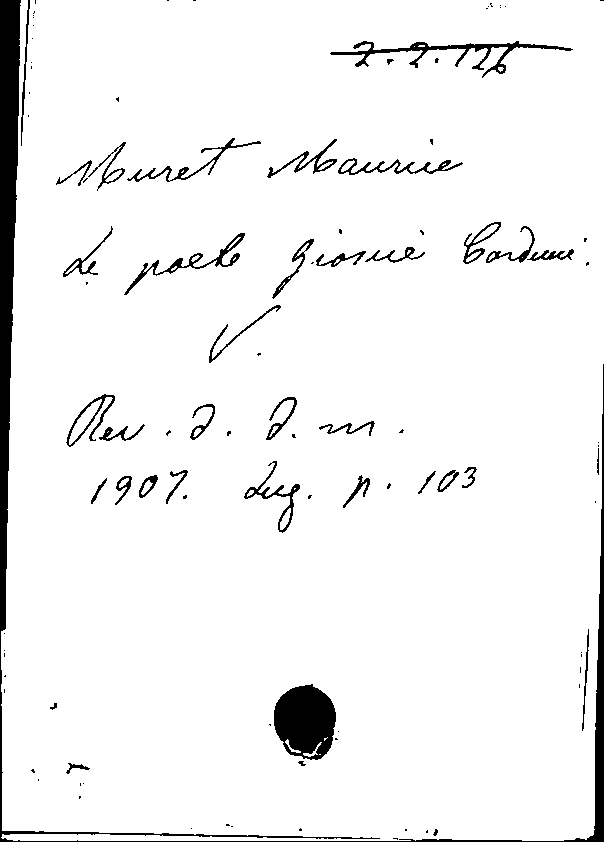 2.2.126
Muret Maurice
Le poete Giosuè Carducci.
V.
Rev. d. d. m.
1907. Lug. p. 103